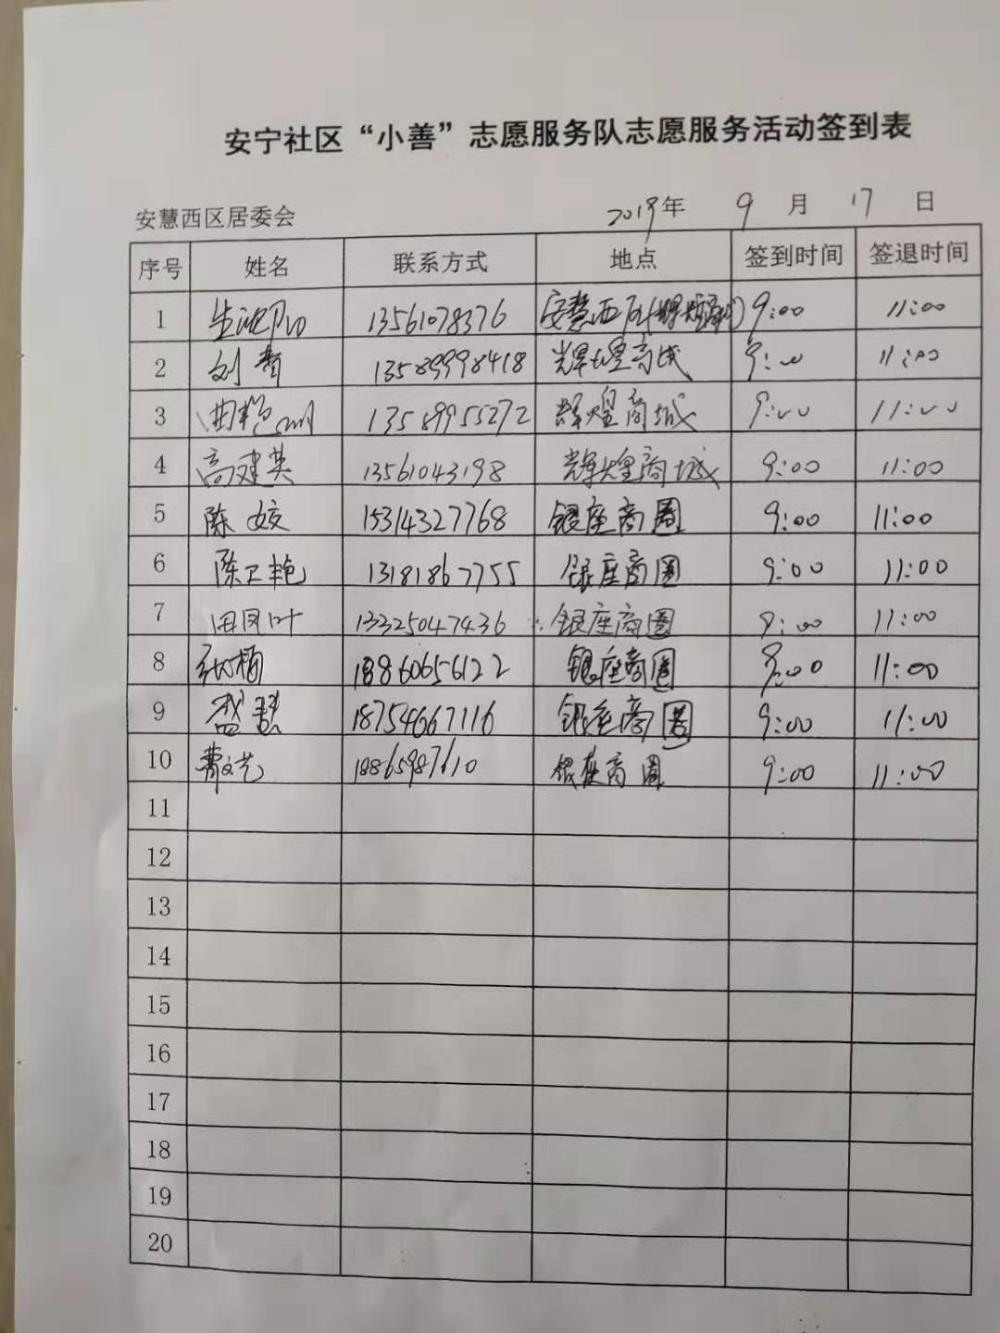 安宁社区“小善”志愿服务队志愿服务活动签到表
安慧西区居委会 2019年 9 月 17 日
序号 姓名 联系方式 地点 签到时间 签退时间
1 13561078376 安慧西区 9:00 11:00
2 刘青 13589998418 辉煌商城 9:00 11:00
3 13589955272 辉煌商城 9:00 11:00
4 高建英 13561043198 辉煌商城 9:00 11:00
5 陈姣 15314327768 银座商圈 9:00 11:00
6 陈卫艳 13181867755 银座商圈 9:00 11:00
7 田风叶 13325047436 银座商圈 9:00 11:00
8 18860656122 银座商圈 9:00 11:00
9 盛慧 18754667116 银座商圈 9:00 11:00
10 曹文艺 18865987610 银座商圈 9:00 11:00
11
12
13
14
15
16
17
18
19
20